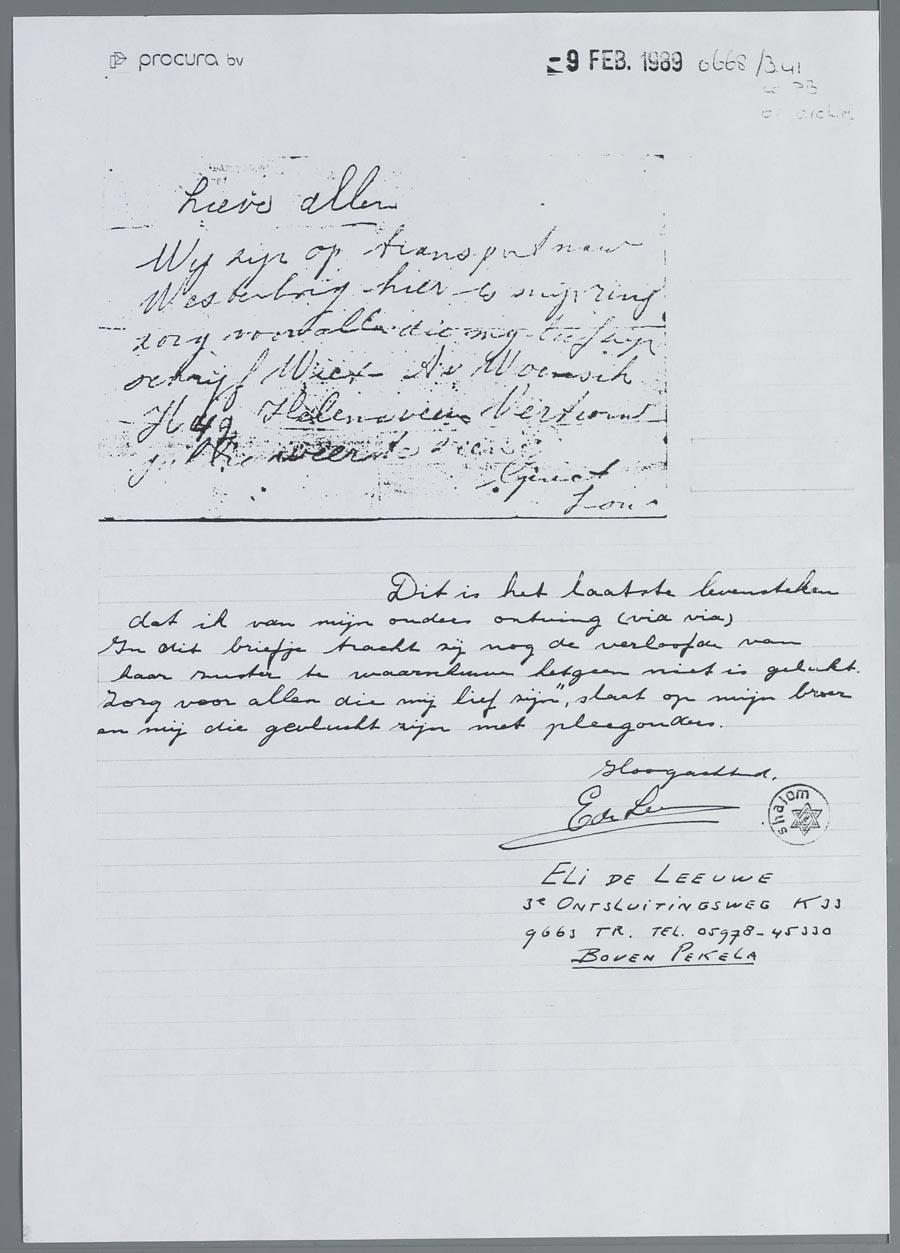 procura bv
- 9 FEB. 1989 0668/3.41
Lieve allen
Wij zijn op transport naar
Westerbrig hier is mijn ring
zorg voor alle die mij lief zijn
schrijf
Helenaveen Vertrouw
weer te zien
Groet
Dit is het laatste levensteken
dat ik van mijn ouders ontving (via via)
In dit briefje tracht zij nog de verloofde van
haar zuster te waarschuwen hetgeen niet is gelukt.
Zorg voor allen die mij lief zijn", slaat op mijn broer
en mij die gevlucht zijn met pleegouders.
Hoogachtend,
E de Le
shalom
ELI DE LEEUWE
3e ONTSLUITINGSWEG K33
9663 TR. TEL. 05978-45330
BOVEN PEKELA